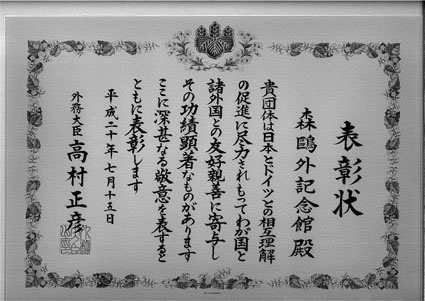 表彰状
森鷗外記念館 殿
貴団体は日本とドイツとの相互理解
の促進に尽力されもってわが国と
諸外国との友好親善に寄与し
その功績顕著なものがあります
ここに深甚なる敬意を表すると
ともに表彰します
平成二十年七月十五日
外務大臣 高村正彦